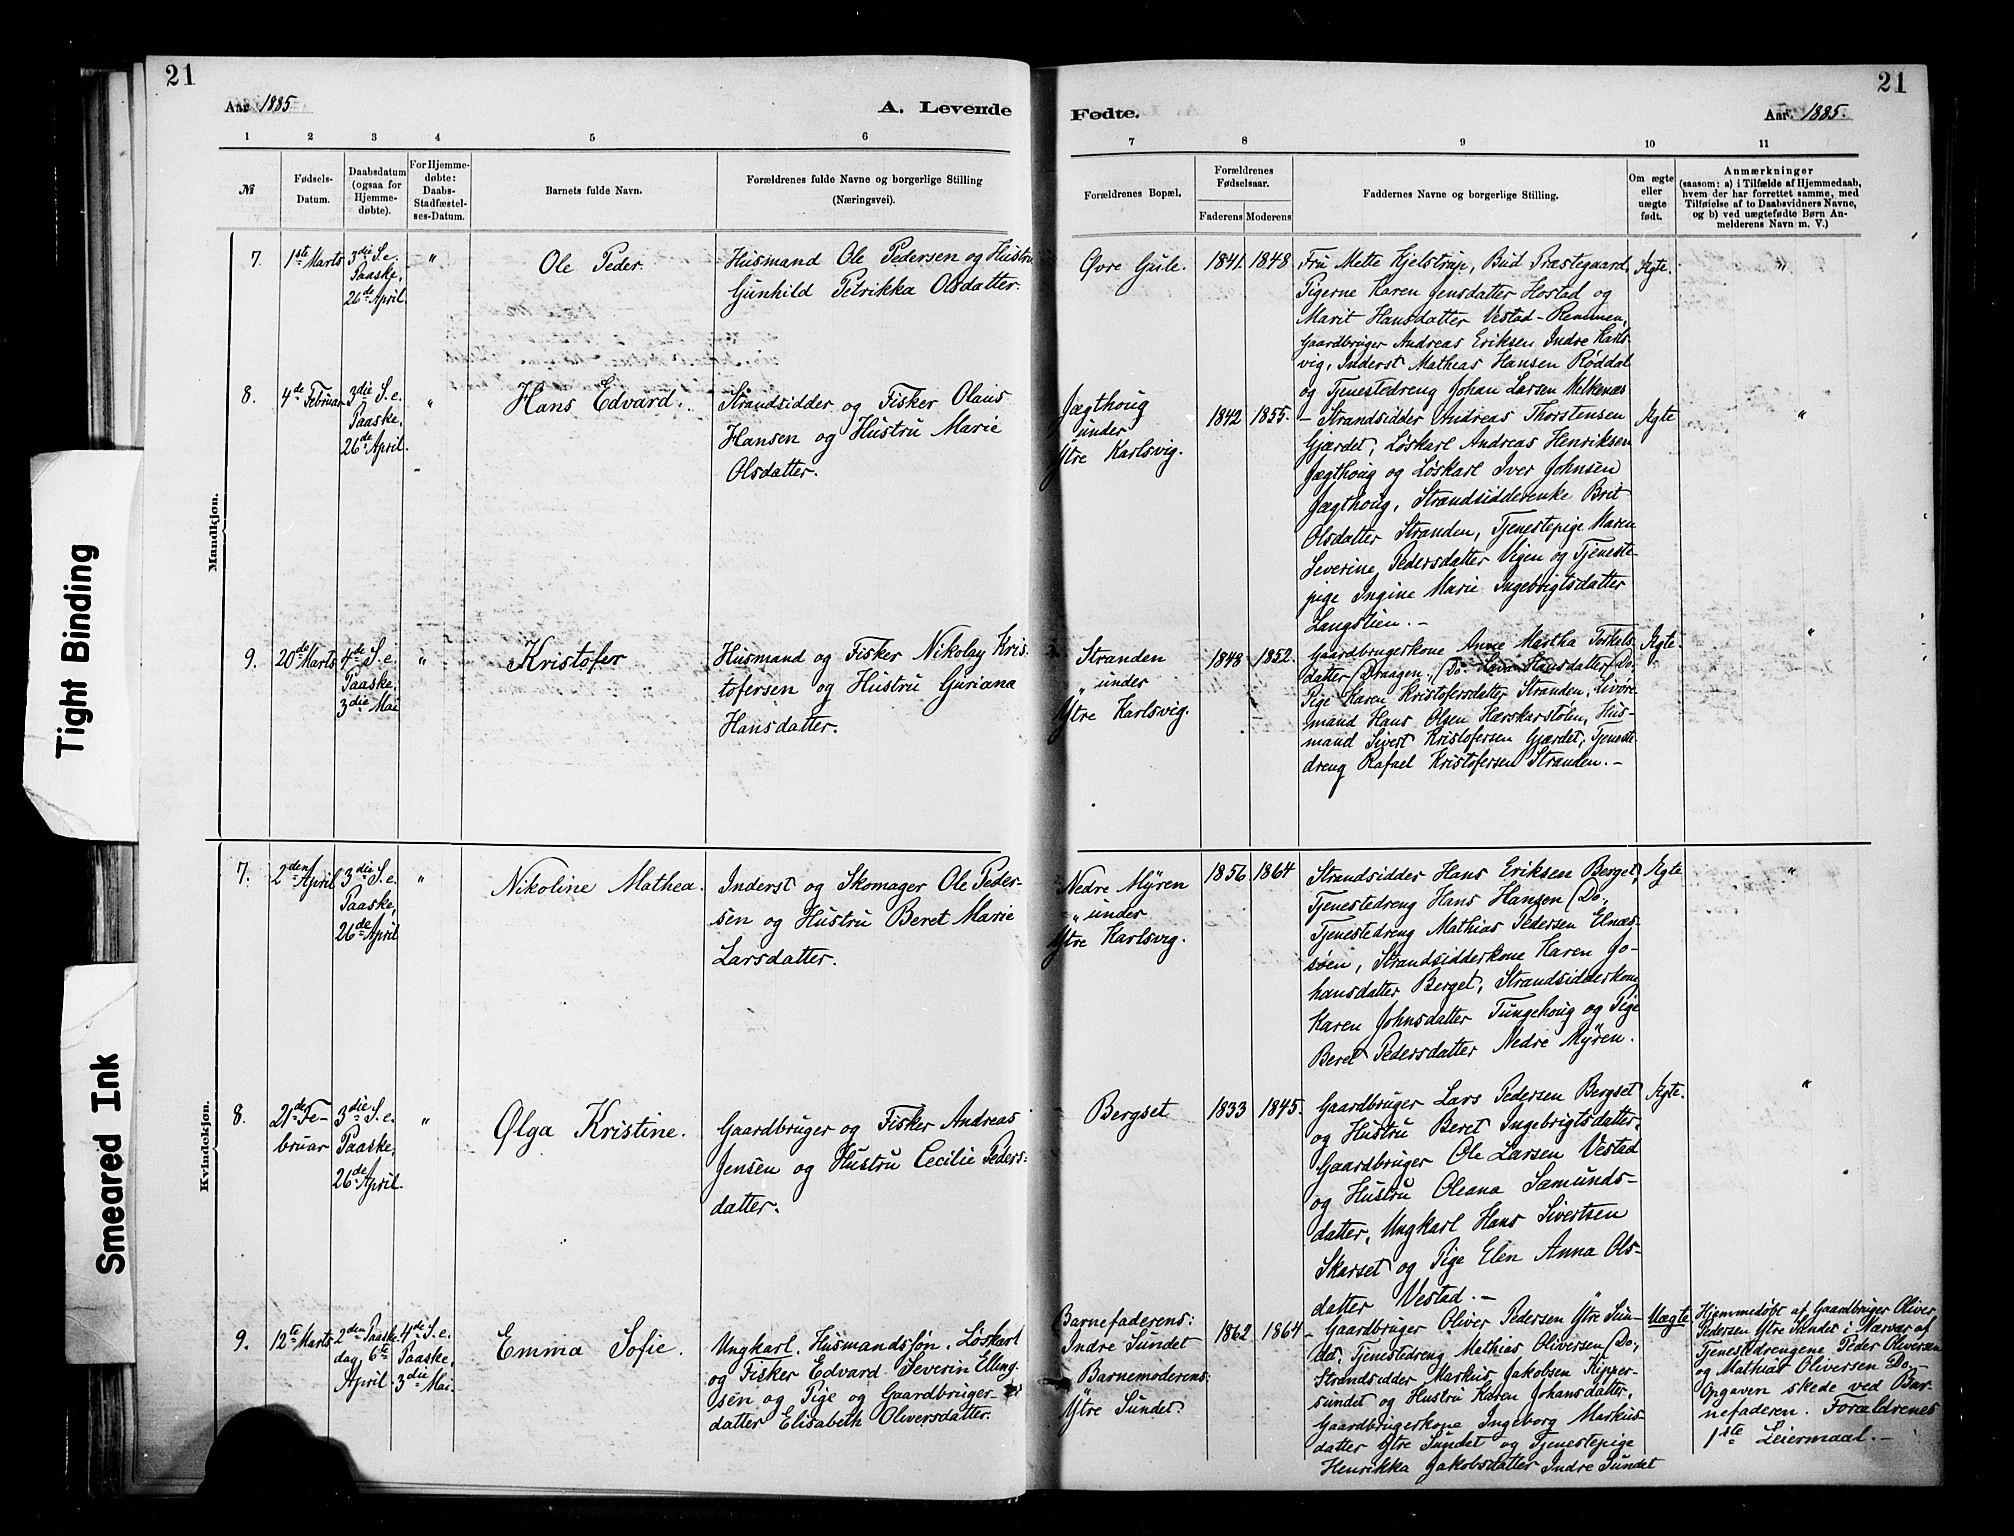 21
Aar 1885
A. Levende
1 2 3 4 5 6
№
Fødsels-
Datum.
Daabsdatum
(ogsaa for
Hjemme-
døbte).
For Hjemme-
døbte:
Daabs-
Stadfæstel-
ses-Datum.
Barnets fulde Navn.
Forældrenes fulde Navne og borgerlige Stilling
(Næringsvei).
Mandkjøn.
7.
1ste Marts
3die S. e.
Paaske,
26de April.
"
Ole Peder.
Husmand Ole Pedersen og Hustru
Gunhild Petrikka Olsdatter.
8.
4de Februar
3die S. e.
Paaske,
26de April.
"
Hans Edvard.
Strandsidder og Fisker Olaus
Hansen og Hustru Marie
Olsdatter.
9.
20de Marts
4de S. e.
Paaske,
3die Mai
"
Kristofer
Husmand og Fisker Nikolay Kris-
tofersen og Hustru Guriana
Hansdatter.
Kvindekjøn.
7.
2den April
3die S. e.
Paaske,
26de April
"
Nikoline Mathea.
Inderst og Skomager Ole Peder-
sen og Hustru Beret Marie
Larsdatter.
8.
21de Fe-
bruar
3die S. e.
Paaske,
26de April.
"
Olga Kristine.
Gaardbruger og Fisker Andreas
Jensen og Hustru Cecilie Peders-
datter.
9.
12te Marts
2den Paaske
dag 6te
April
4de S. e.
Paaske,
3die Mai.
Emma Sofie.
Ungkarl, Husmandssøn, Løskarl
og Fisker Edvard Severin Elling-
sen og Pige og Gaardbruger-
datter Elisabeth Oliversdatter.
21
Fødte.
Aar 1885.
7 8 9 10 11
Forældrenes Bopæl.
Forældrenes
Fødselsaar.
Faderens
Moderens
Faddernes Navne og borgerlige Stilling.
Om ægte
eller
uægte
født.
Anmærkninger
(saasom: a) i Tilfælde af Hjemmedaab,
hvem der har forrettet samme, med
Tilføielse af to Daabsvidners Navne,
og b) ved uægtefødte Børn An-
melderens Navn m. V.)
Øvre Gule.
1841. 1848
Fru Mette Kjelstrup, Bud Præstegaard,
Pigerne Karen Jensdatter Hostad og
Marit Hansdatter Vestad-Remmen,
Gaardbruger Andreas Eriksen Indre Karls-
vig, Inderst Mathias Hansen Røddal
og Tjenestedreng Johan Larsen Melkenæs
Ægte.
"
Jægthoug
under
Ytre Karlsvig.
1842 1855.
– Strandsidder Andreas Thorstensen
Gjærdet, Løskarl Andreas Henriksen
Jægthoug og Løskarl Iver Johnsen
Jægthoug, Strandsidderenke Brit
Olsdatter Stranden, Tjenestepige Maren
Severine Pedersdatter Vigen og Tjeneste-
pige Ingine Marie Ingebrigtsdatter
Langslien. –
Ægte
"
Stranden
" under
Ytre Karlsvig.
1848 1852.
Gaardbrugerkone Anne Martha Torkels-
datter Draagen, Do. Hansdatter Do.
Pige Karen Kristofersdatter Stranden,
mand Hans Olsen Hærskarstølen, Hus-
mand Sivert Kristofersen Gjærdet, Tjeneste-
dreng Rafael Kristofersen Stranden. –
Ægte.
"
Nedre Myren
" under
Ytre Karlsvig.
1856 1864
Strandsidder Hans Eriksen Berget,
Tjenestedreng Hans Hansen Do,
Tjenestedreng Mathias Pedersen Elnæs-
søen, Strandsidderkone Karen Jo-
hansdatter Berget, Strandsidderkone
Karen Johnsdatter Tungehoug og Pige
Beret Pedersdatter Nedre Myren.
Ægte
"
Bergset
1833 1845.
Gaardbruger Lars Pedersen Bergset
og Hustru Beret Ingebrigtsdatter,
Gaardbruger Ole Larsen Vestad
og Hustru Oleana Samunds-
datter, Ungkarl Hans Sivertsen
Skarset og Pige Elen Anna Ols-
datter Vestad. –
Ægte.
"
Barnefaderens:
Indre Sundet
Barnemoderens:
Ytre Sundet.
1862 1864
– Gaardbruger Oliver Pedersen Ytre Sun-
det, Tjenestedreng Mathias Oliversen Do,
Strandsidder Markus Jakobsen Kipper-
sundet og Hustru Karen Johansdatter,
Gaardbrugerkone Ingeborg Markus-
datter Ytre Sundet og Tjenestepige
Henrikka Jakobsdatter Indre Sundet
Uægte
Hjemmedøbt af Gaardbruger Oliver
Pedersen Ytre Sundet i Nærvær af
Tjenestedrengene Peder Oliversen
og Mathias Oliversen Do. –
Opgaven skede ved Bar-
nefaderen. Forældrenes
1ste Leiermaal. –
Tight Binding
Smeared Ink